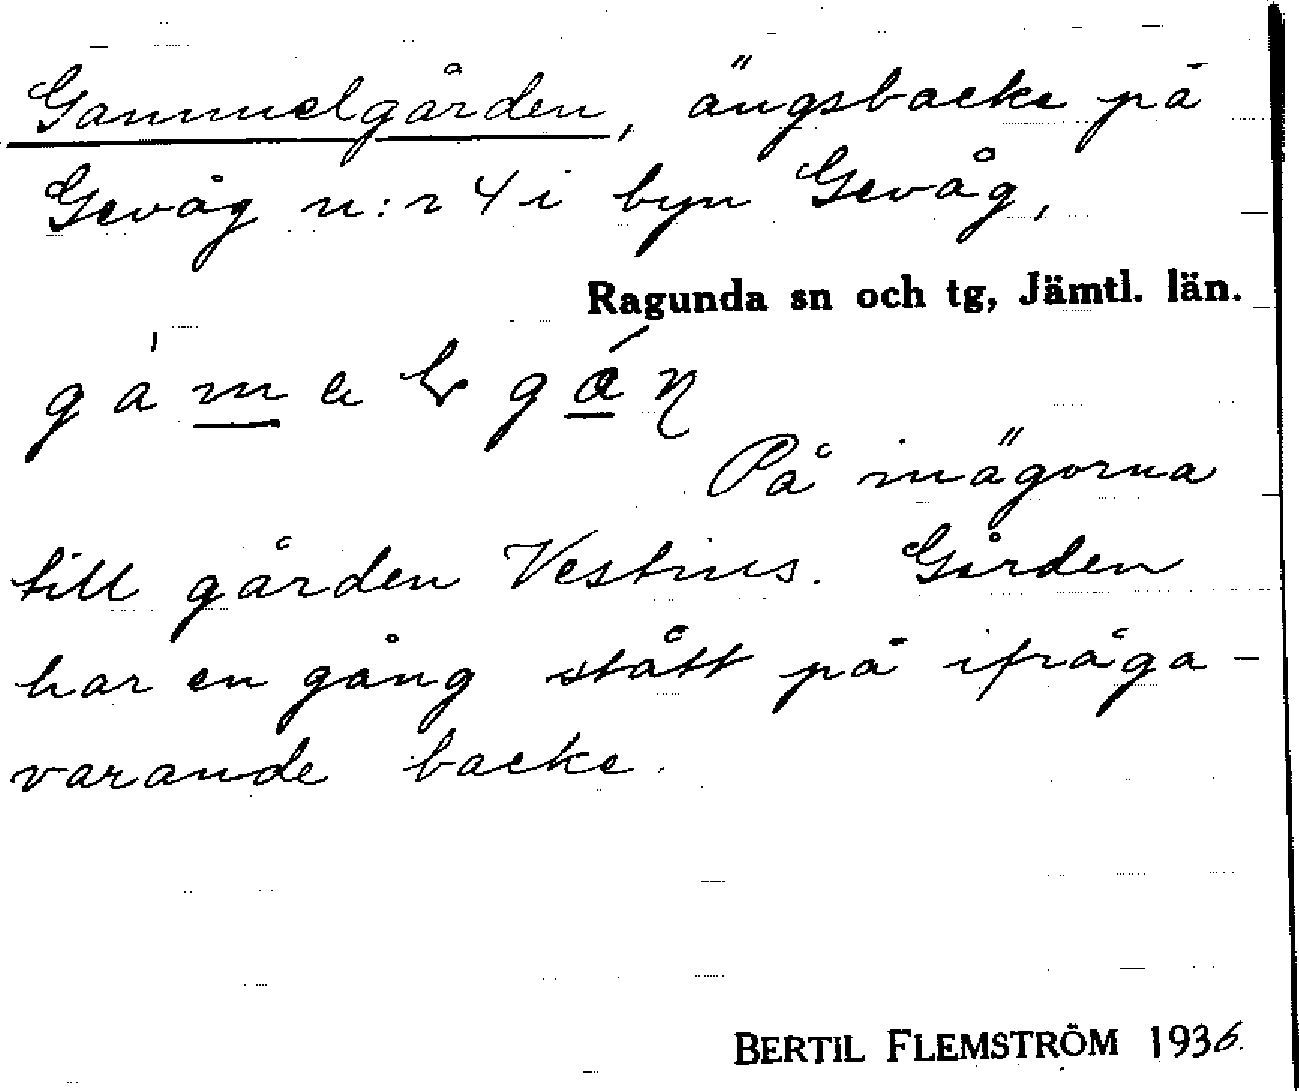 Gammelgården, ängsbacke på
Gevåg n:r 4 i byn Gevåg,
Ragunda sn och tg, Jämtl. län.
På inägorna
till gården Vestins. Gården
har en gång stått på ifråga-
varande backe.
BERTIL FLEMSTRÖM 1936